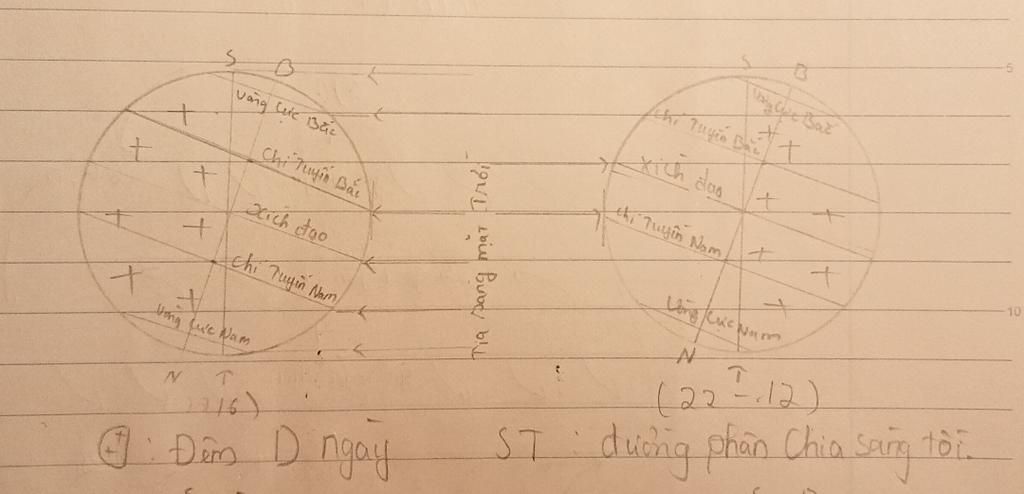 S B
Vòng Cực Bắc
Chí Tuyến Bắc
Xích đạo
Chí Tuyến Nam
Vòng Cực Nam
N T
16)
Tia sáng mặt Trời
S B
Vòng Cực Bắc
Chí Tuyến Bắc
Xích đạo
Chí Tuyến Nam
Vòng Cực Nam
N T
(22-12)
5
10
: Đêm D ngày ST : đường phân Chia sáng tối.